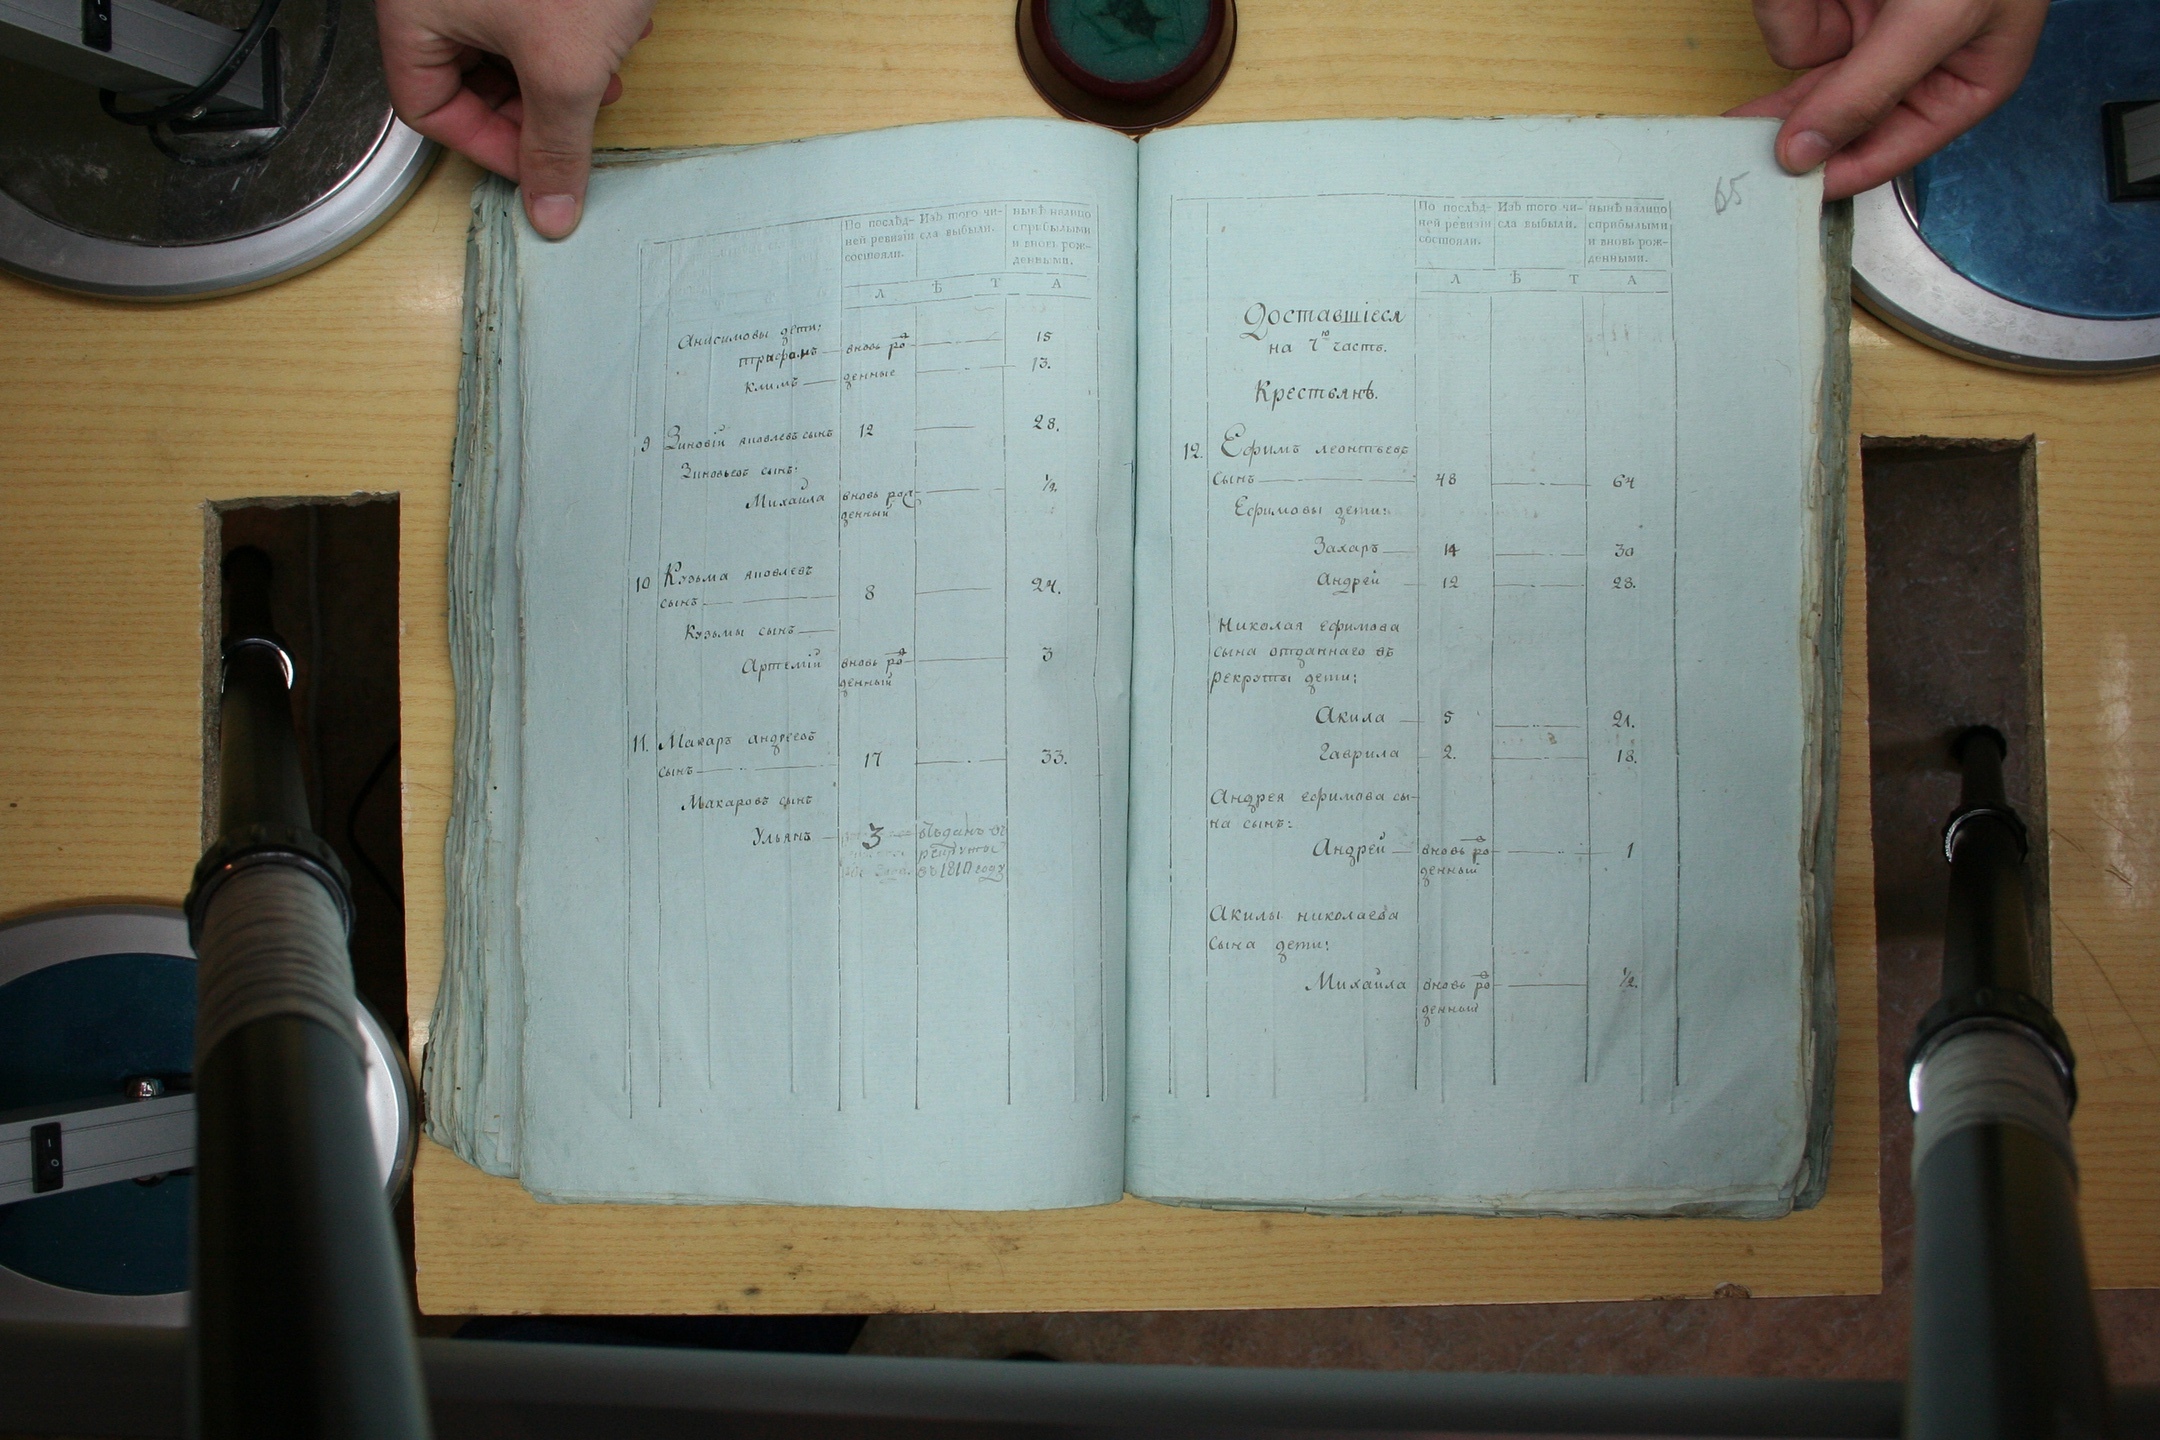 По послѣд-
ней ревизіи
состояли.
Изъ того чи-
сла выбыли.
нынѣ налицо
сприбылыми
и вновь рож-
денными.
Л Ѣ Т А
Анисимовы дети:
вновь ро 15
Климъ денные 13.
9 Зиновій яковлевъ сынъ 12 28.
Зиновьевъ сынъ:
Михайла вновь рож- ½.
денный
10 Кузьма яковлевъ
сынъ 8 24.
Кузьмы сынъ
Артемій вновь ро 3
денный
11. Макаръ андреевъ
сынъ 17 33.
Макаровъ сынъ
Ульянъ 3 отданъ въ
рекруты
въ 1810 году
65
По послѣд-
ней ревизіи
состояли.
Изъ того чи-
сла выбыли.
нынѣ налицо
сприбылыми
и вновь рож-
денными.
Л Ѣ Т А
Доставшіеся
на 7ю часть.
Крестьянѣ.
12. Ефимъ леонтьевъ
сынъ 48 64
Ефимовы дети:
Захаръ 14 30
Андрей 12 28.
Николая ефимова
сына отданнаго въ
рекруты дети:
Акила 5 21.
Гаврила 2. 18.
Андрея ефимова сы-
на сынъ:
Андрей вновь ро 1
денный
Акилы николаева
сына дети:
Михайла вновь ро ½.
денный